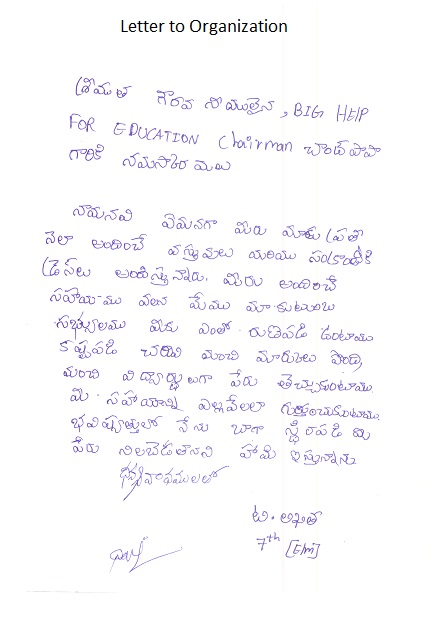 Letter to Organization
శ్రీమతి గౌరవనీయులైన, BIG HELP
FOR EDUCATION Chairman చాంద్ పాషా
గారికి నమస్కారములు
నా మనవి ఏమనగా మీరు మాకు ప్రతి
నెలా అందించే వస్తువులు మరియు సంక్రాంతికి
డ్రెస్‌లు అందిస్తున్నారు. మీరు అందించే
సహాయము వలన మేము మా కుటుంబ
సభ్యులము మీకు ఎంతో రుణపడి ఉంటాము
కష్టపడి చదివి మంచి మార్కులు పొంది
మంచి విద్యార్థులుగా పేరు తెచ్చుకుంటాము.
మీ సహాయాన్ని ఎల్లవేళలా గుర్తుంచుకుంటాము.
భవిష్యత్తులో నేను బాగా స్థిరపడి మీ
పేరు నిలబెడతానని హామీ ఇస్తున్నాను
ధన్యవాదములతో
టి. అఖిత
7th [E/M]